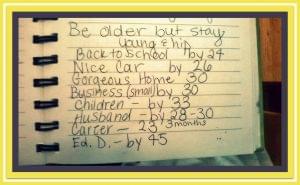 Be older but stay
young & hip
Back to School by 24
Nice Car by 26
Gorgeous Home 30
Business (small) by 30
Children - by 33
Husband - by 28-30
Career - 23 3months
Ed. D. - by 45